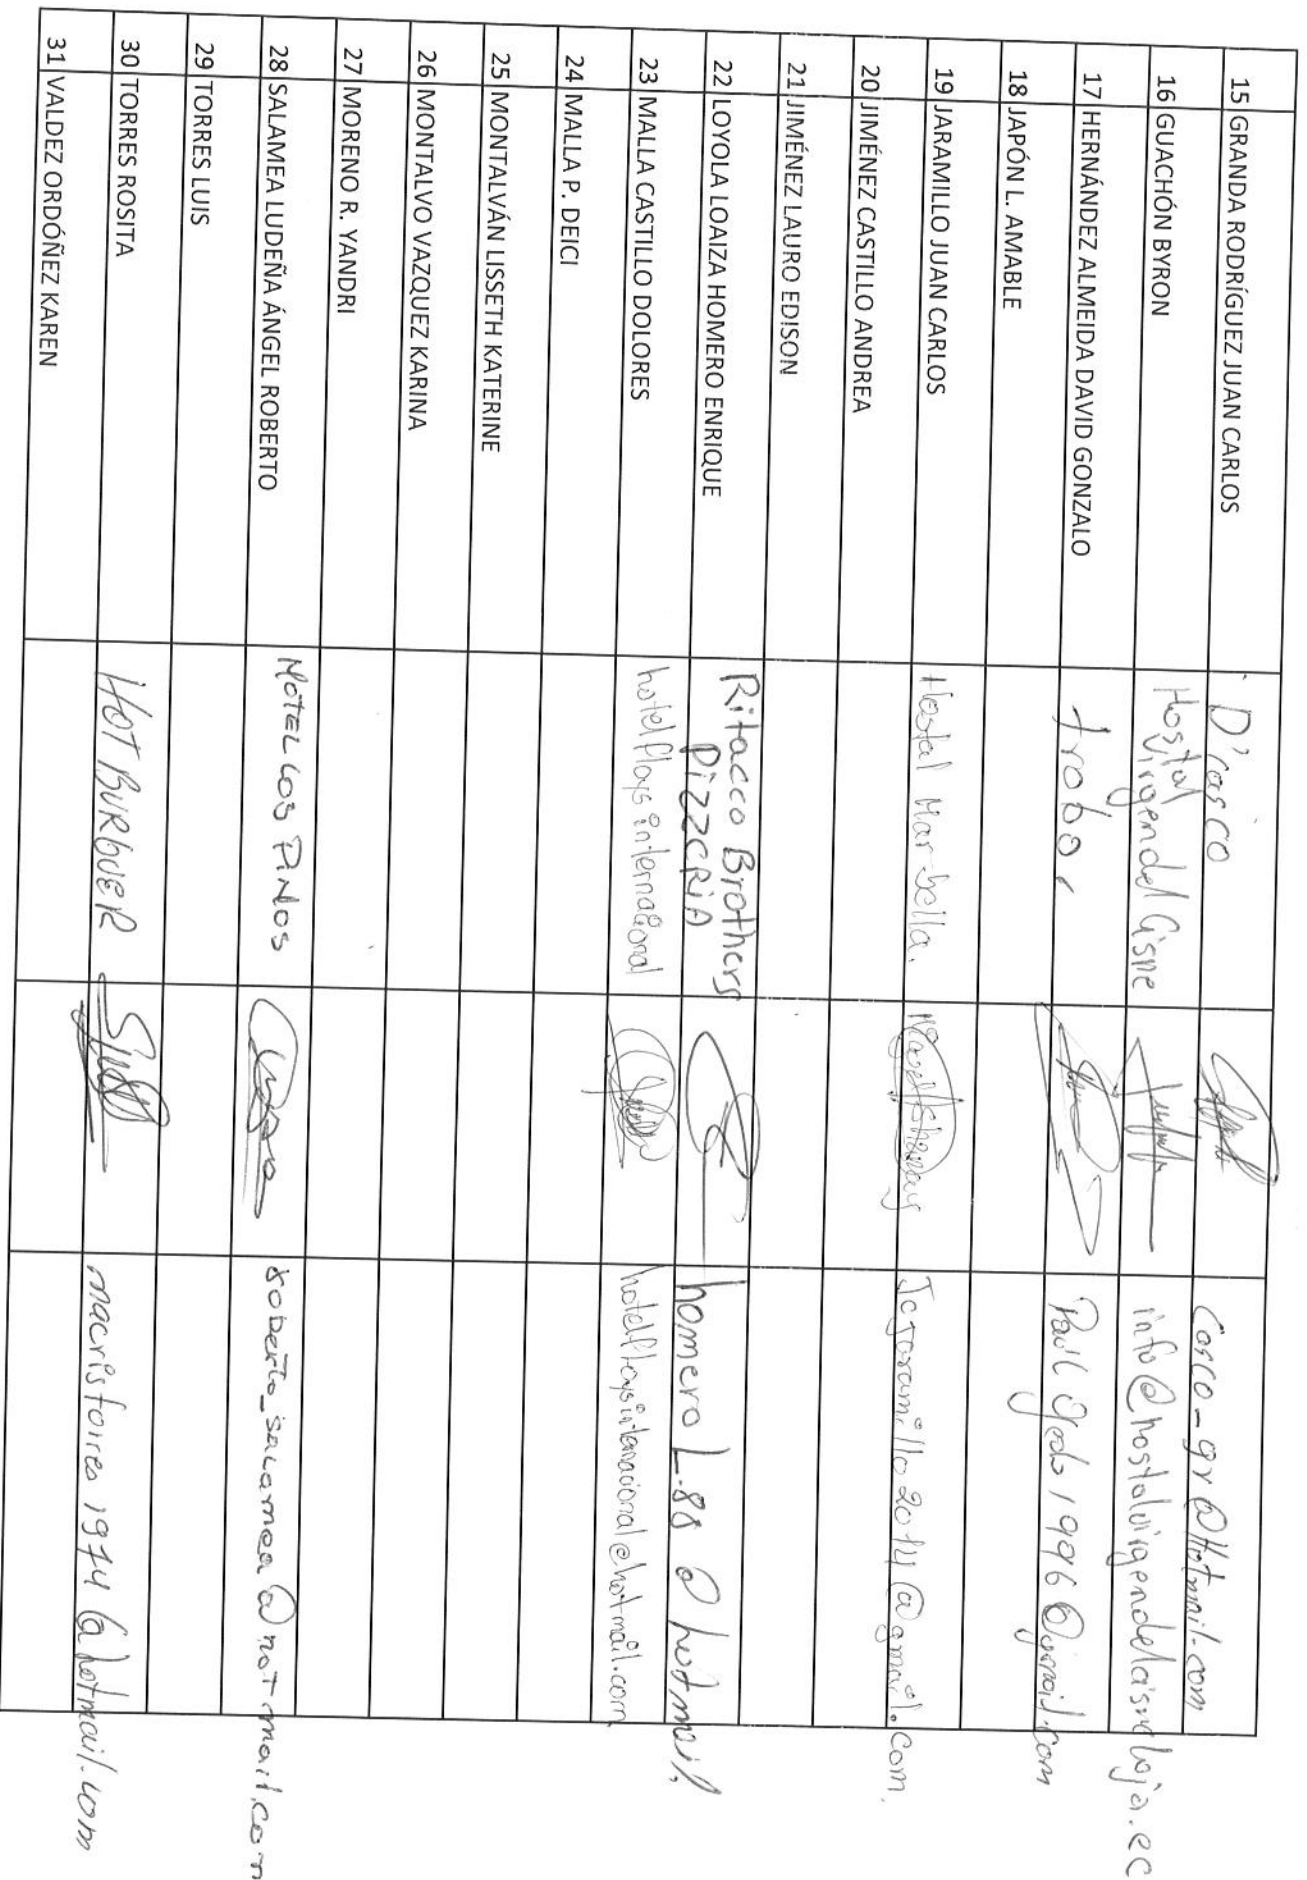 15 GRANDA RODRÍGUEZ JUAN CARLOS D'casco Casco_gr@Hotmail.com
16 GUACHÓN BYRON Hostal Virgen del Cisne info@hostalvirgendelcisneloja.ec
17 HERNÁNDEZ ALMEIDA DAVID GONZALO Paul 1996@gmail.com
18 JAPÓN L. AMABLE
19 JARAMILLO JUAN CARLOS Hostal Mar-bella. Jcjaramillo2014@gmail.com.
20 JIMÉNEZ CASTILLO ANDREA
21 JIMÉNEZ LAURO EDISON
22 LOYOLA LOAIZA HOMERO ENRIQUE Ritacco Brothers PIZZERIA homeroL-80@hotmail,
23 MALLA CASTILLO DOLORES hotel floys internacional hotelfloysinternacional@hotmail.com
24 MALLA P. DEICI
25 MONTALVÁN LISSETH KATERINE
26 MONTALVO VAZQUEZ KARINA
27 MORENO R. YANDRI
28 SALAMEA LUDEÑA ÁNGEL ROBERTO MOTEL LOS PINOS roberto_salamea@hotmail.com
29 TORRES LUIS
30 TORRES ROSITA HOT BURGUER macristorres1974@hotmail.com
31 VALDEZ ORDÓÑEZ KAREN